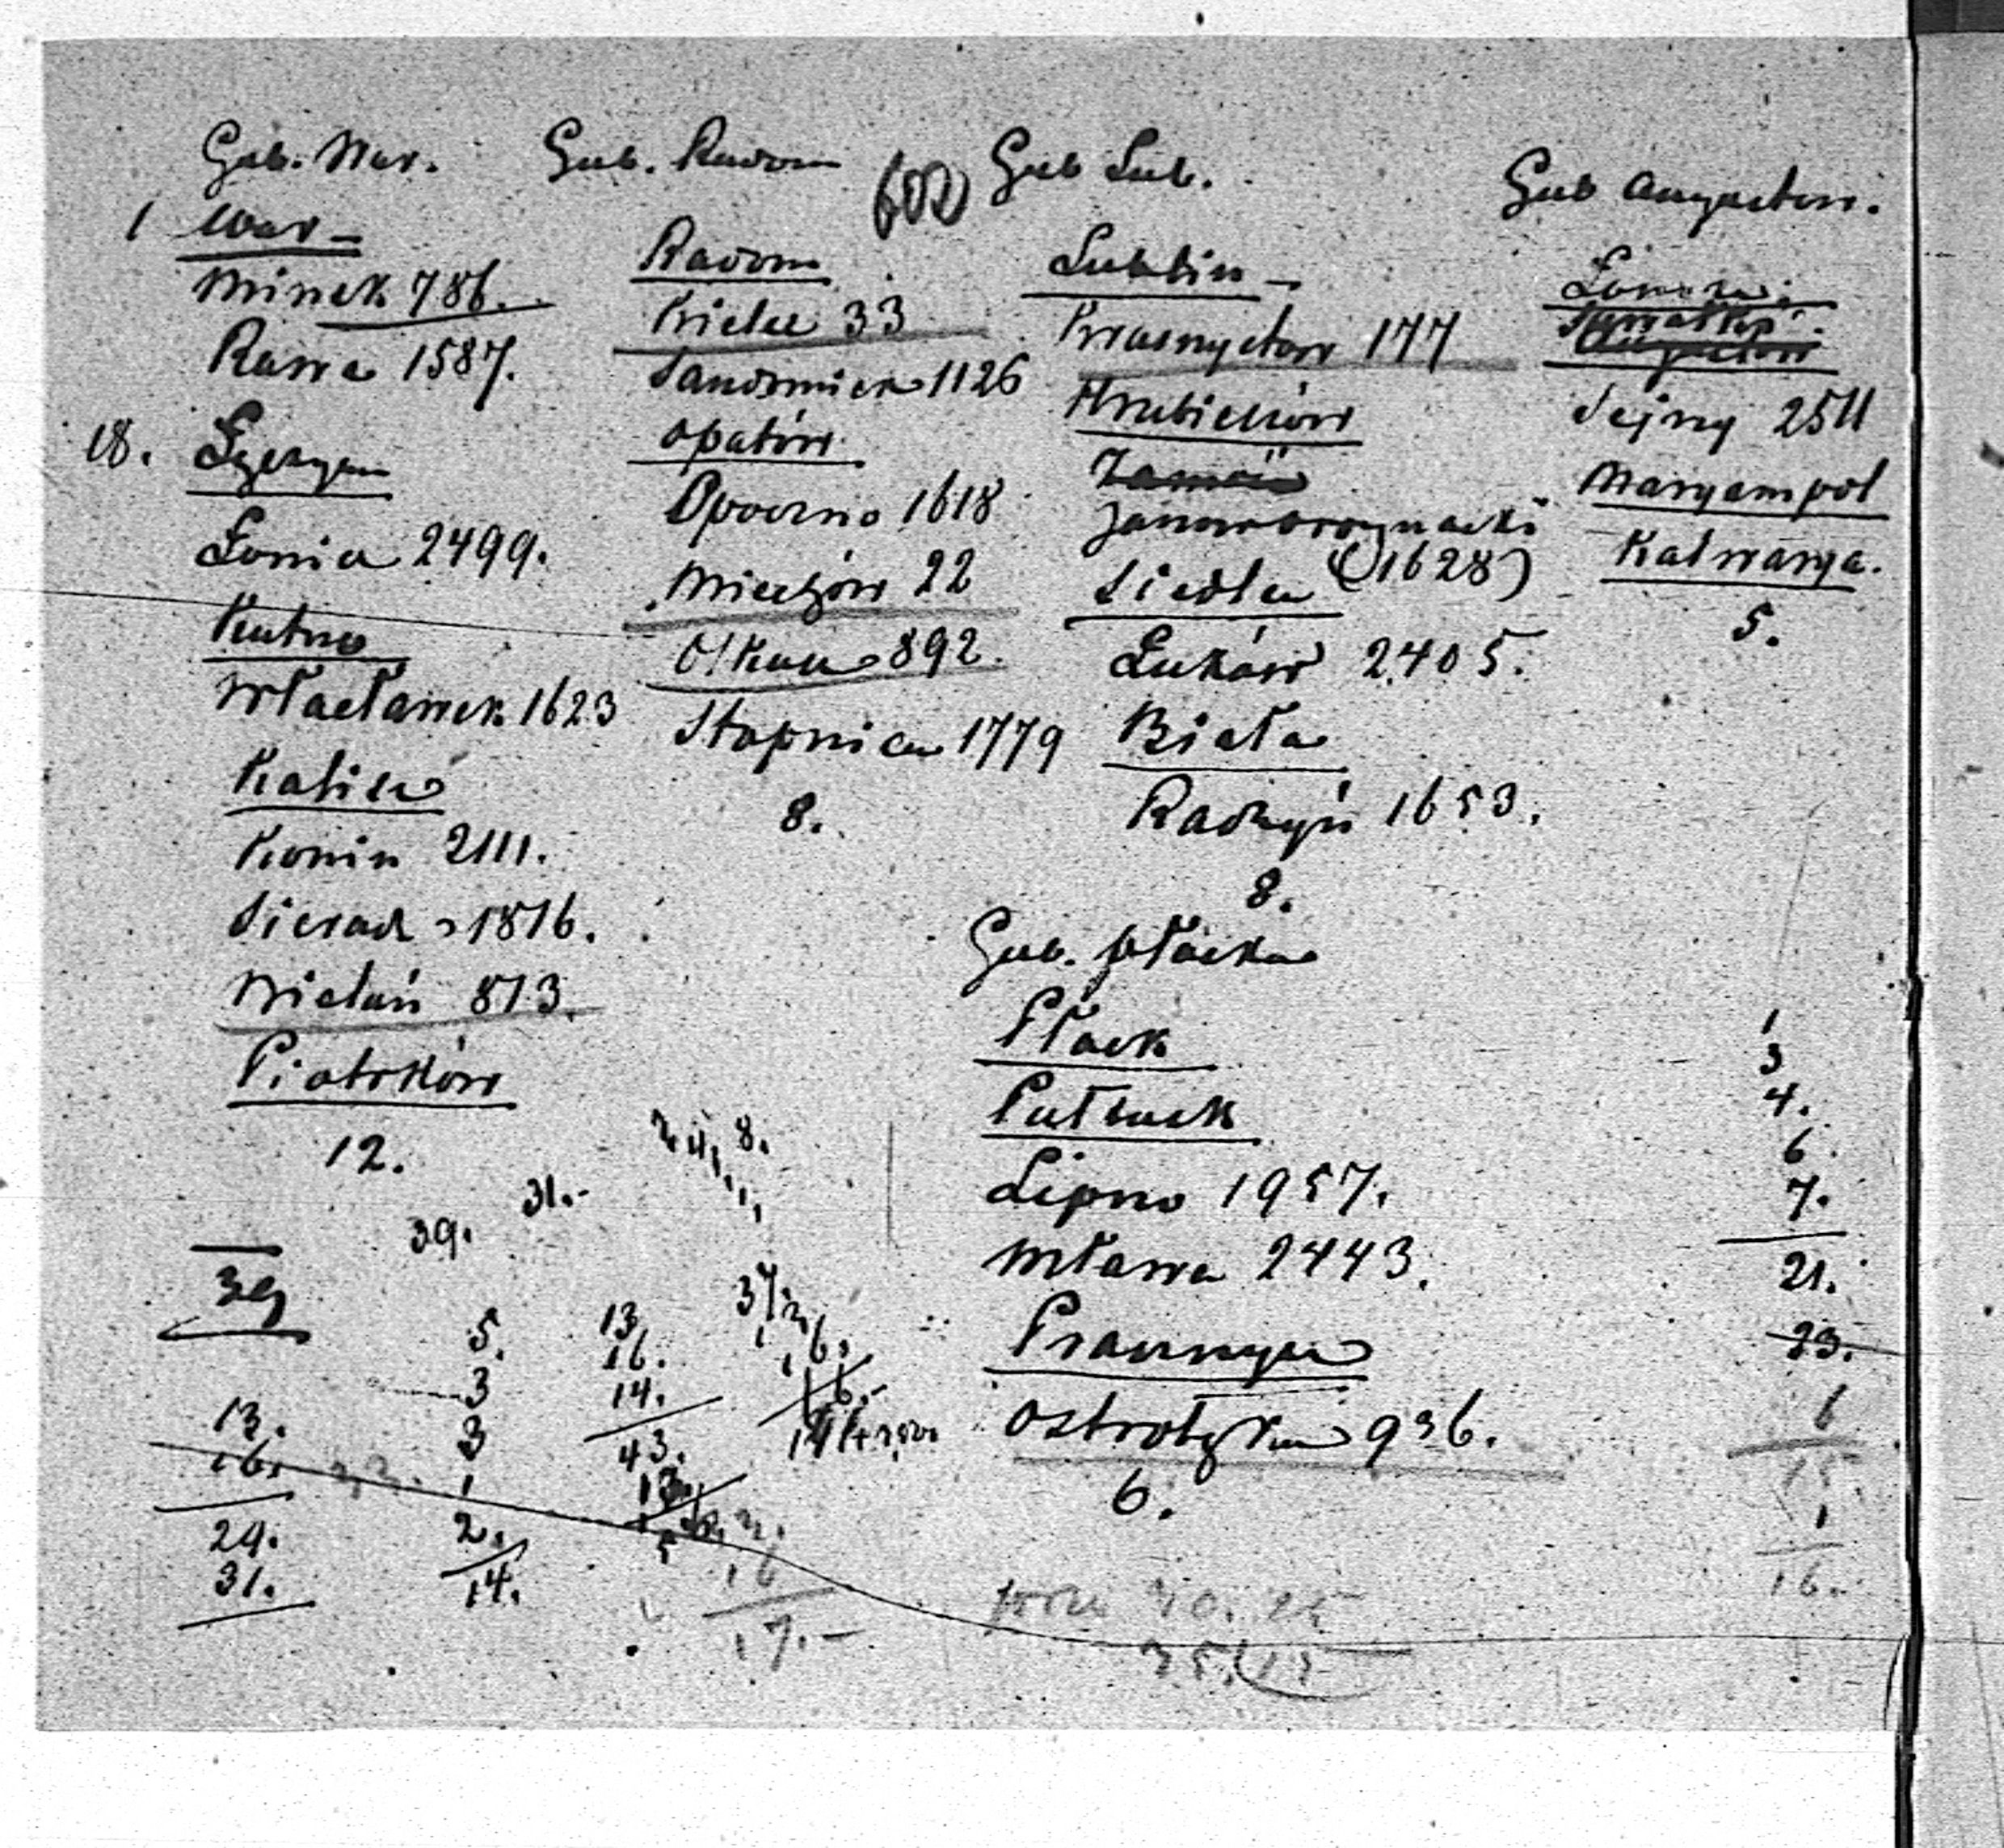 Gub. War.
1 War -
Minsk 786.
Rawa 1587.
18. Łęczyca
Łowicz 2499.
Kutno
Włacławek 1623
Kalisz
Konin 2111.
Sieradz 1816.
Wieluń 813.
Piotrków
12.
31.-
39.
39
13.
16.
29.
31.
5.
3
3
1
2.
14.
13
16.
14.
43.
Gub. Radom
602
Radom
Kielce 33
Sandomierz 1126
Opatów
Opoczno 1618
Miechów 22
Olkusz 892.
Stopnica 1779
8.
17.-
Gub Lub.
Lublin -
Krasnystaw 177
Hrubieszów
Zamość
Janów
(1628)
Siedlce
Łuków 2405.
Biała
Radzyń 1653.
8.
Gub. płocka
Płock
Pułtusk
Lipno 1957.
Mława 2443.
Prasnysz
Ostrołęka 936.
6.
Gub Augustow.
Łomża
Augustów
Sejny 2511
Maryampol
Kalwarya.
5.
1
3
4.
6
7.
21.
23.
1
15
1
16.